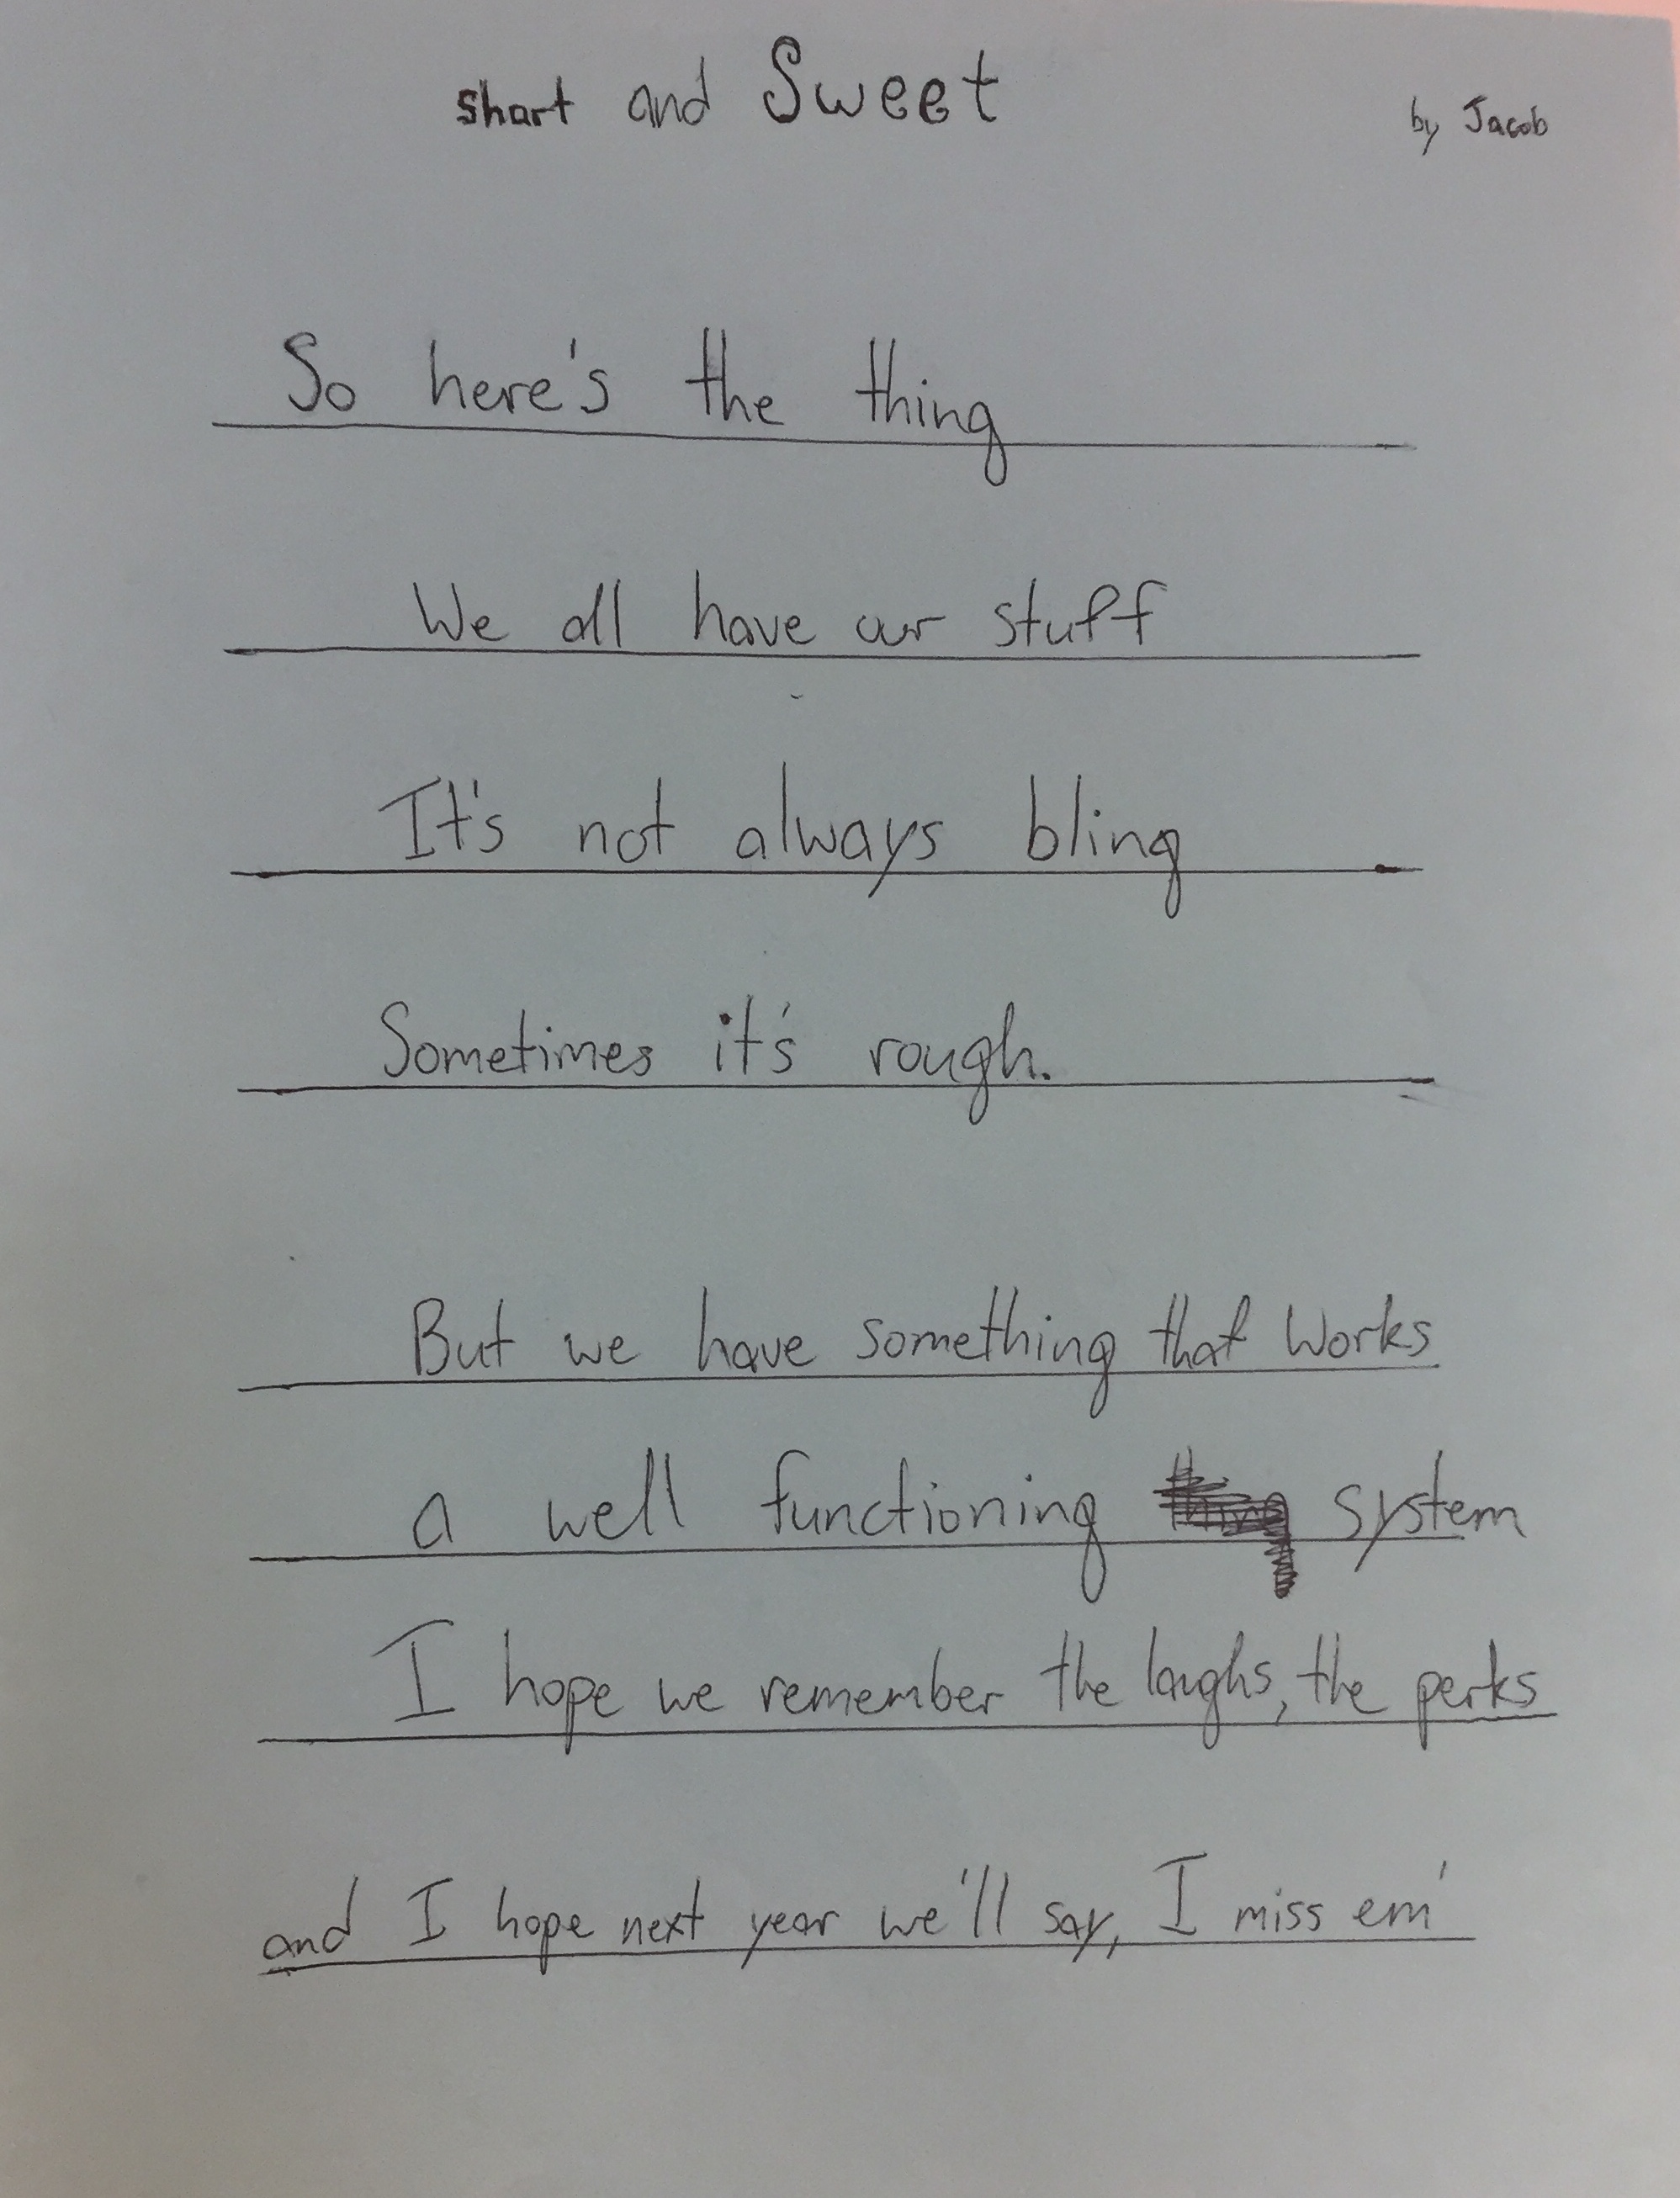 short and Sweet
by Jacob
So here's the thing
We all have our stuff
It's not always bling
Sometimes it's rough.
But we have something that works
a well functioning thing system
I hope we remember the laughs, the perks
and I hope next year we'll say, I miss em'